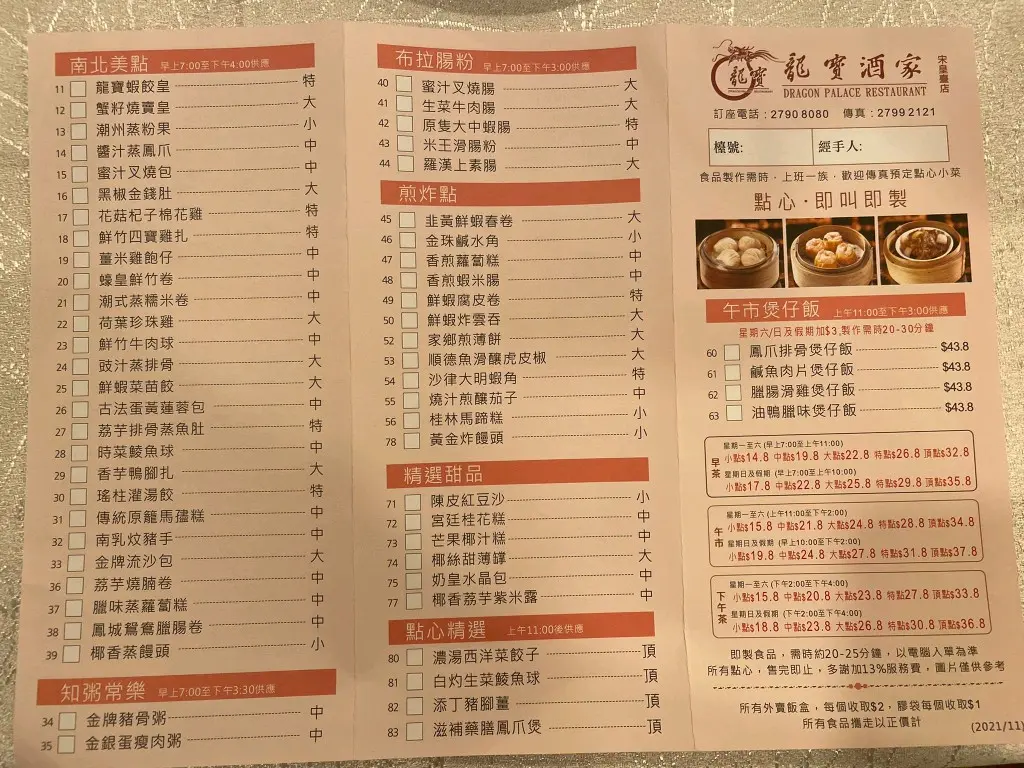 南北美點 早上7:00至下午4:00供應
11 龍寶蝦餃皇 特
12 蟹籽燒賣皇 大
13 潮州蒸粉果 小
14 醬汁蒸鳳爪 中
15 蜜汁叉燒包 中
16 黑椒金錢肚 大
17 花菇杞子棉花雞 特
18 鮮竹四寶雞扎 特
19 薑米雞飽仔 中
20 蠔皇鮮竹卷 中
21 潮式蒸糯米卷 中
22 荷葉珍珠雞 大
23 鮮竹牛肉球 中
24 豉汁蒸排骨 大
25 鮮蝦菜苗餃 大
26 古法蛋黃蓮蓉包 中
27 荔芋排骨蒸魚肚 特
28 時菜鯪魚球 中
29 香芋鴨腳扎 大
30 瑤柱灌湯餃 特
31 傳統原籠馬孻糕 中
32 南乳炆豬手 中
33 金牌流沙包 大
36 荔芋燒腩卷 中
37 臘味蒸蘿蔔糕 中
38 鳳城鴛鴦臘腸卷 中
39 椰香蒸饅頭 小
知粥常樂 早上7:00至下午3:30供應
34 金牌豬骨粥 中
35 金銀蛋瘦肉粥 中
布拉腸粉 早上7:00至下午3:00供應
40 蜜汁叉燒腸 大
41 生菜牛肉腸 大
42 原隻大中蝦腸 特
43 米王滑腸粉 中
44 羅漢上素腸 大
煎炸點
45 韭黃鮮蝦春卷 大
46 金珠鹹水角 小
47 香煎蘿蔔糕 中
48 香煎蝦米腸 中
49 鮮蝦腐皮卷 特
50 鮮蝦炸雲吞 大
52 家鄉煎薄餅 大
53 順德魚滑釀虎皮椒 大
54 沙律大明蝦角 特
55 燒汁煎釀茄子 中
56 桂林馬蹄糕 小
78 黃金炸饅頭 小
精選甜品
71 陳皮紅豆沙 小
72 宮廷桂花糕 中
73 芒果椰汁糕 中
74 椰絲甜薄罉 大
75 奶皇水晶包 中
77 椰香荔芋紫米露 中
點心精選 上午11:00後供應
80 濃湯西洋菜餃子 頂
81 白灼生菜鯪魚球 頂
82 添丁豬腳薑 頂
83 滋補藥膳鳳爪煲 頂
龍寶
龍寶酒家 宋皇臺店
DRAGON PALACE RESTAURANT
訂座電話：2790 8080 傳真：2799 2121
檯號: 經手人:
食品製作需時，上班一族，歡迎傳真預定點心小菜
點心·即叫即製
午市煲仔飯 上午11:00至下午3:00供應
星期六/日及假期加$3,製作需時20-30分鐘
60 鳳爪排骨煲仔飯 $43.8
61 鹹魚肉片煲仔飯 $43.8
62 臘腸滑雞煲仔飯 $43.8
63 油鴨臘味煲仔飯 $43.8
早茶
星期一至六 (早上7:00至上午11:00)
小點$14.8 中點$19.8 大點$22.8 特點$26.8 頂點$32.8
星期日及假期 (早上7:00至上午10:00)
小點$17.8 中點$22.8 大點$25.8 特點$29.8 頂點$35.8
午市
星期一至六 (上午11:00至下午2:00)
小點$15.8 中點$21.8 大點$24.8 特點$28.8 頂點$34.8
星期日及假期 (早上10:00至下午2:00)
小點$19.8 中點$24.8 大點$27.8 特點$31.8 頂點$37.8
下午茶
星期一至六 (下午2:00至下午4:00)
小點$15.8 中點$20.8 大點$23.8 特點$27.8 頂點$33.8
星期日及假期 (下午2:00至下午4:00)
小點$18.8 中點$23.8 大點$26.8 特點$30.8 頂點$36.8
即製食品，需時約20-25分鐘，以電腦入單為準
所有點心，售完即止，多謝加13%服務費，圖片僅供參考
所有外賣飯盒，每個收取$2，膠袋每個收取$1
所有食品攜走以正價計
(2021/11)